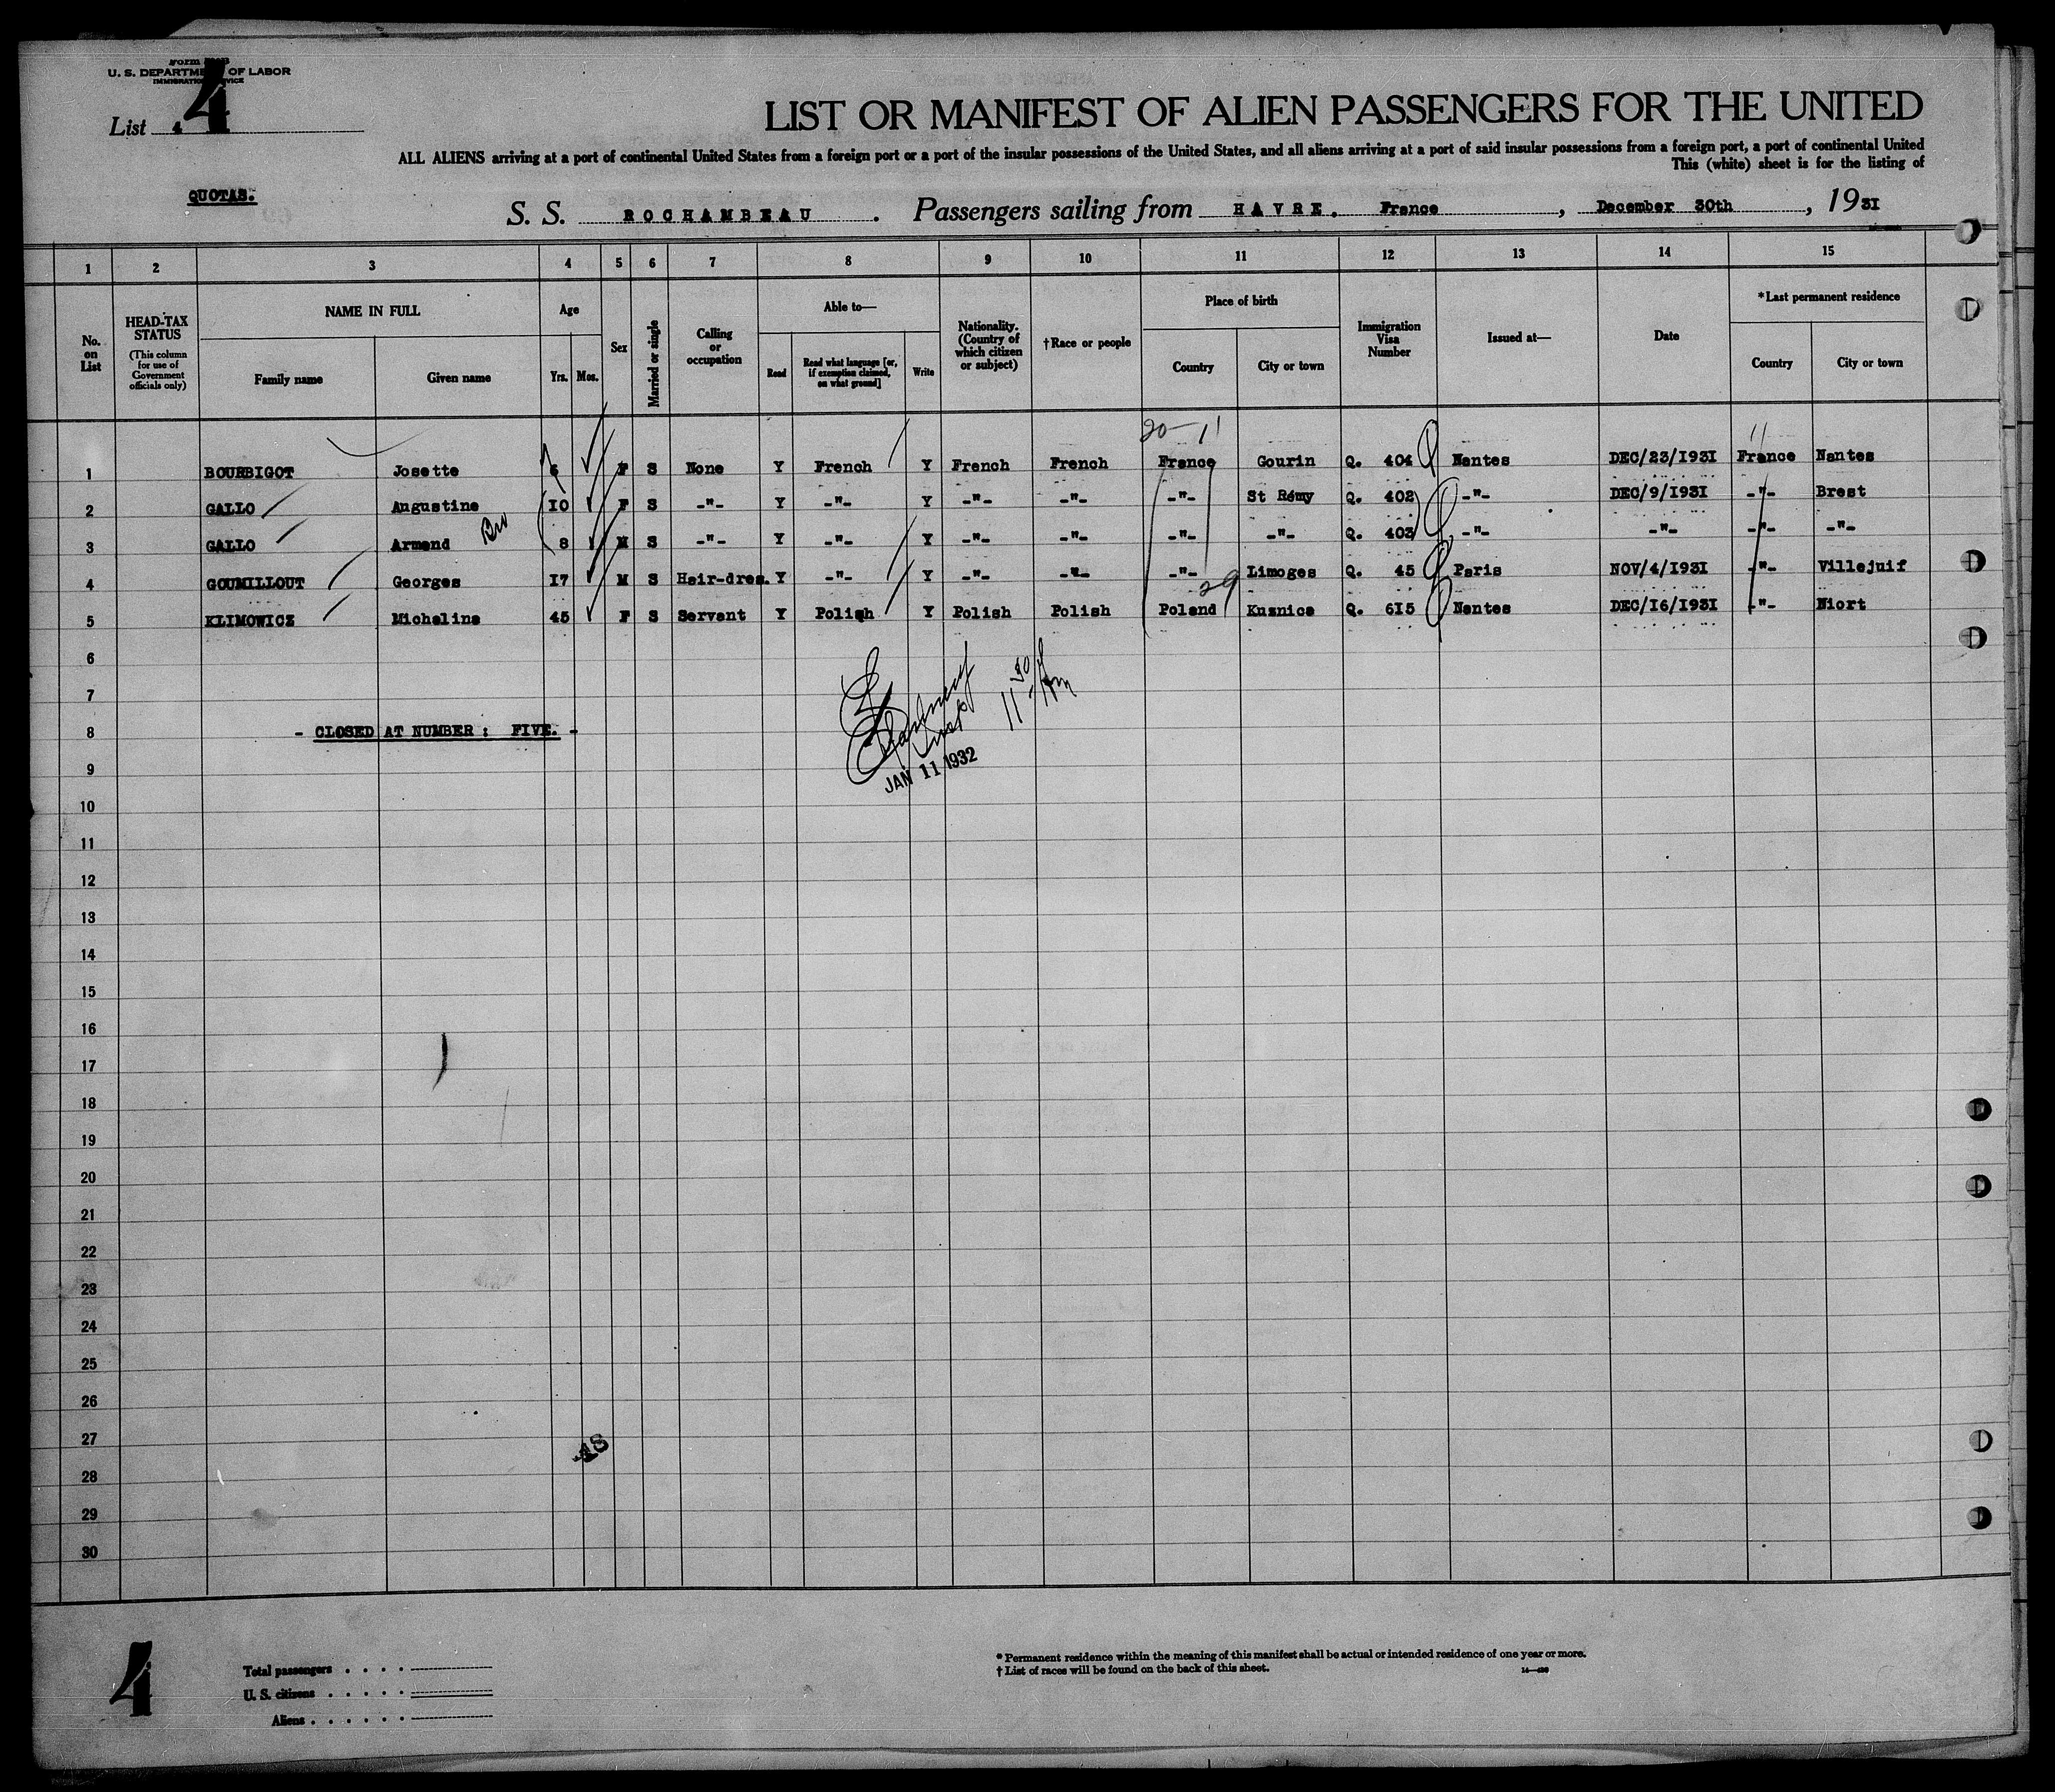 U. S. DEPARTMENT OF LABOR
IMMIGRATION SERVICE
4
List 4
LIST OR MANIFEST OF ALIEN PASSENGERS FOR THE UNITED
ALL ALIENS arriving at a port of continental United States from a foreign port or a port of the insular possessions of the United States, and all aliens arriving at a port of said insular possessions from a foreign port, a port of continental United
This (white) sheet is for the listing of
QUOTAS.
S. S. ROCHAMBEAU . Passengers sailing from HAVRE. France , December 30th , 1931
1 2 3 4 5 6 7 8 9 10 11 12 13 14 15
No. on List
HEAD-TAX STATUS
(This column for use of Government officials only)
NAME IN FULL
Family name Given name
Age
Yrs. Mos.
Sex
Married or single
Calling or occupation
Able to—
Read Read what language [or, if exemption claimed, on what ground] Write
Nationality. (Country of which citizen or subject)
†Race or people
Place of birth
Country City or town
Immigration Visa Number
Issued at—
Date
*Last permanent residence
Country City or town
20-11
11
1 BOURBIGOT Josette 6 F S None Y French Y French French France Gourin Q. 404 Nantes DEC/23/1931 France Nantes
2 GALLO Augustine 10 F S -"- Y -"- Y -"- -"- -"- St Rémy Q. 402 -"- DEC/9/1931 -"- Brest
3 GALLO Armand Bro 8 M S -"- Y -"- Y -"- -"- -"- -"- Q. 403 -"- -"- -"- -"-
4 GOUMILLOUT Georges 17 M S Hair-dres. Y -"- Y -"- -"- -"- Limoges Q. 45 Paris NOV/4/1931 -"- Villejuif
29
5 KLIMOWICZ Micheline 45 F S Servant Y Polish Y Polish Polish Poland Kuznica Q. 615 Nantes DEC/16/1931 -"- Niort
6
7
8 - CLOSED AT NUMBER : FIVE. -
Insp
11 30 Am
JAN 11 1932
9
10
11
12
13
14
15
16
17
18
19
20
21
22
23
24
25
26
27
28
29
30
4
Total passengers
U. S. citizens
Aliens
* Permanent residence within the meaning of this manifest shall be actual or intended residence of one year or more.
† List of races will be found on the back of this sheet.